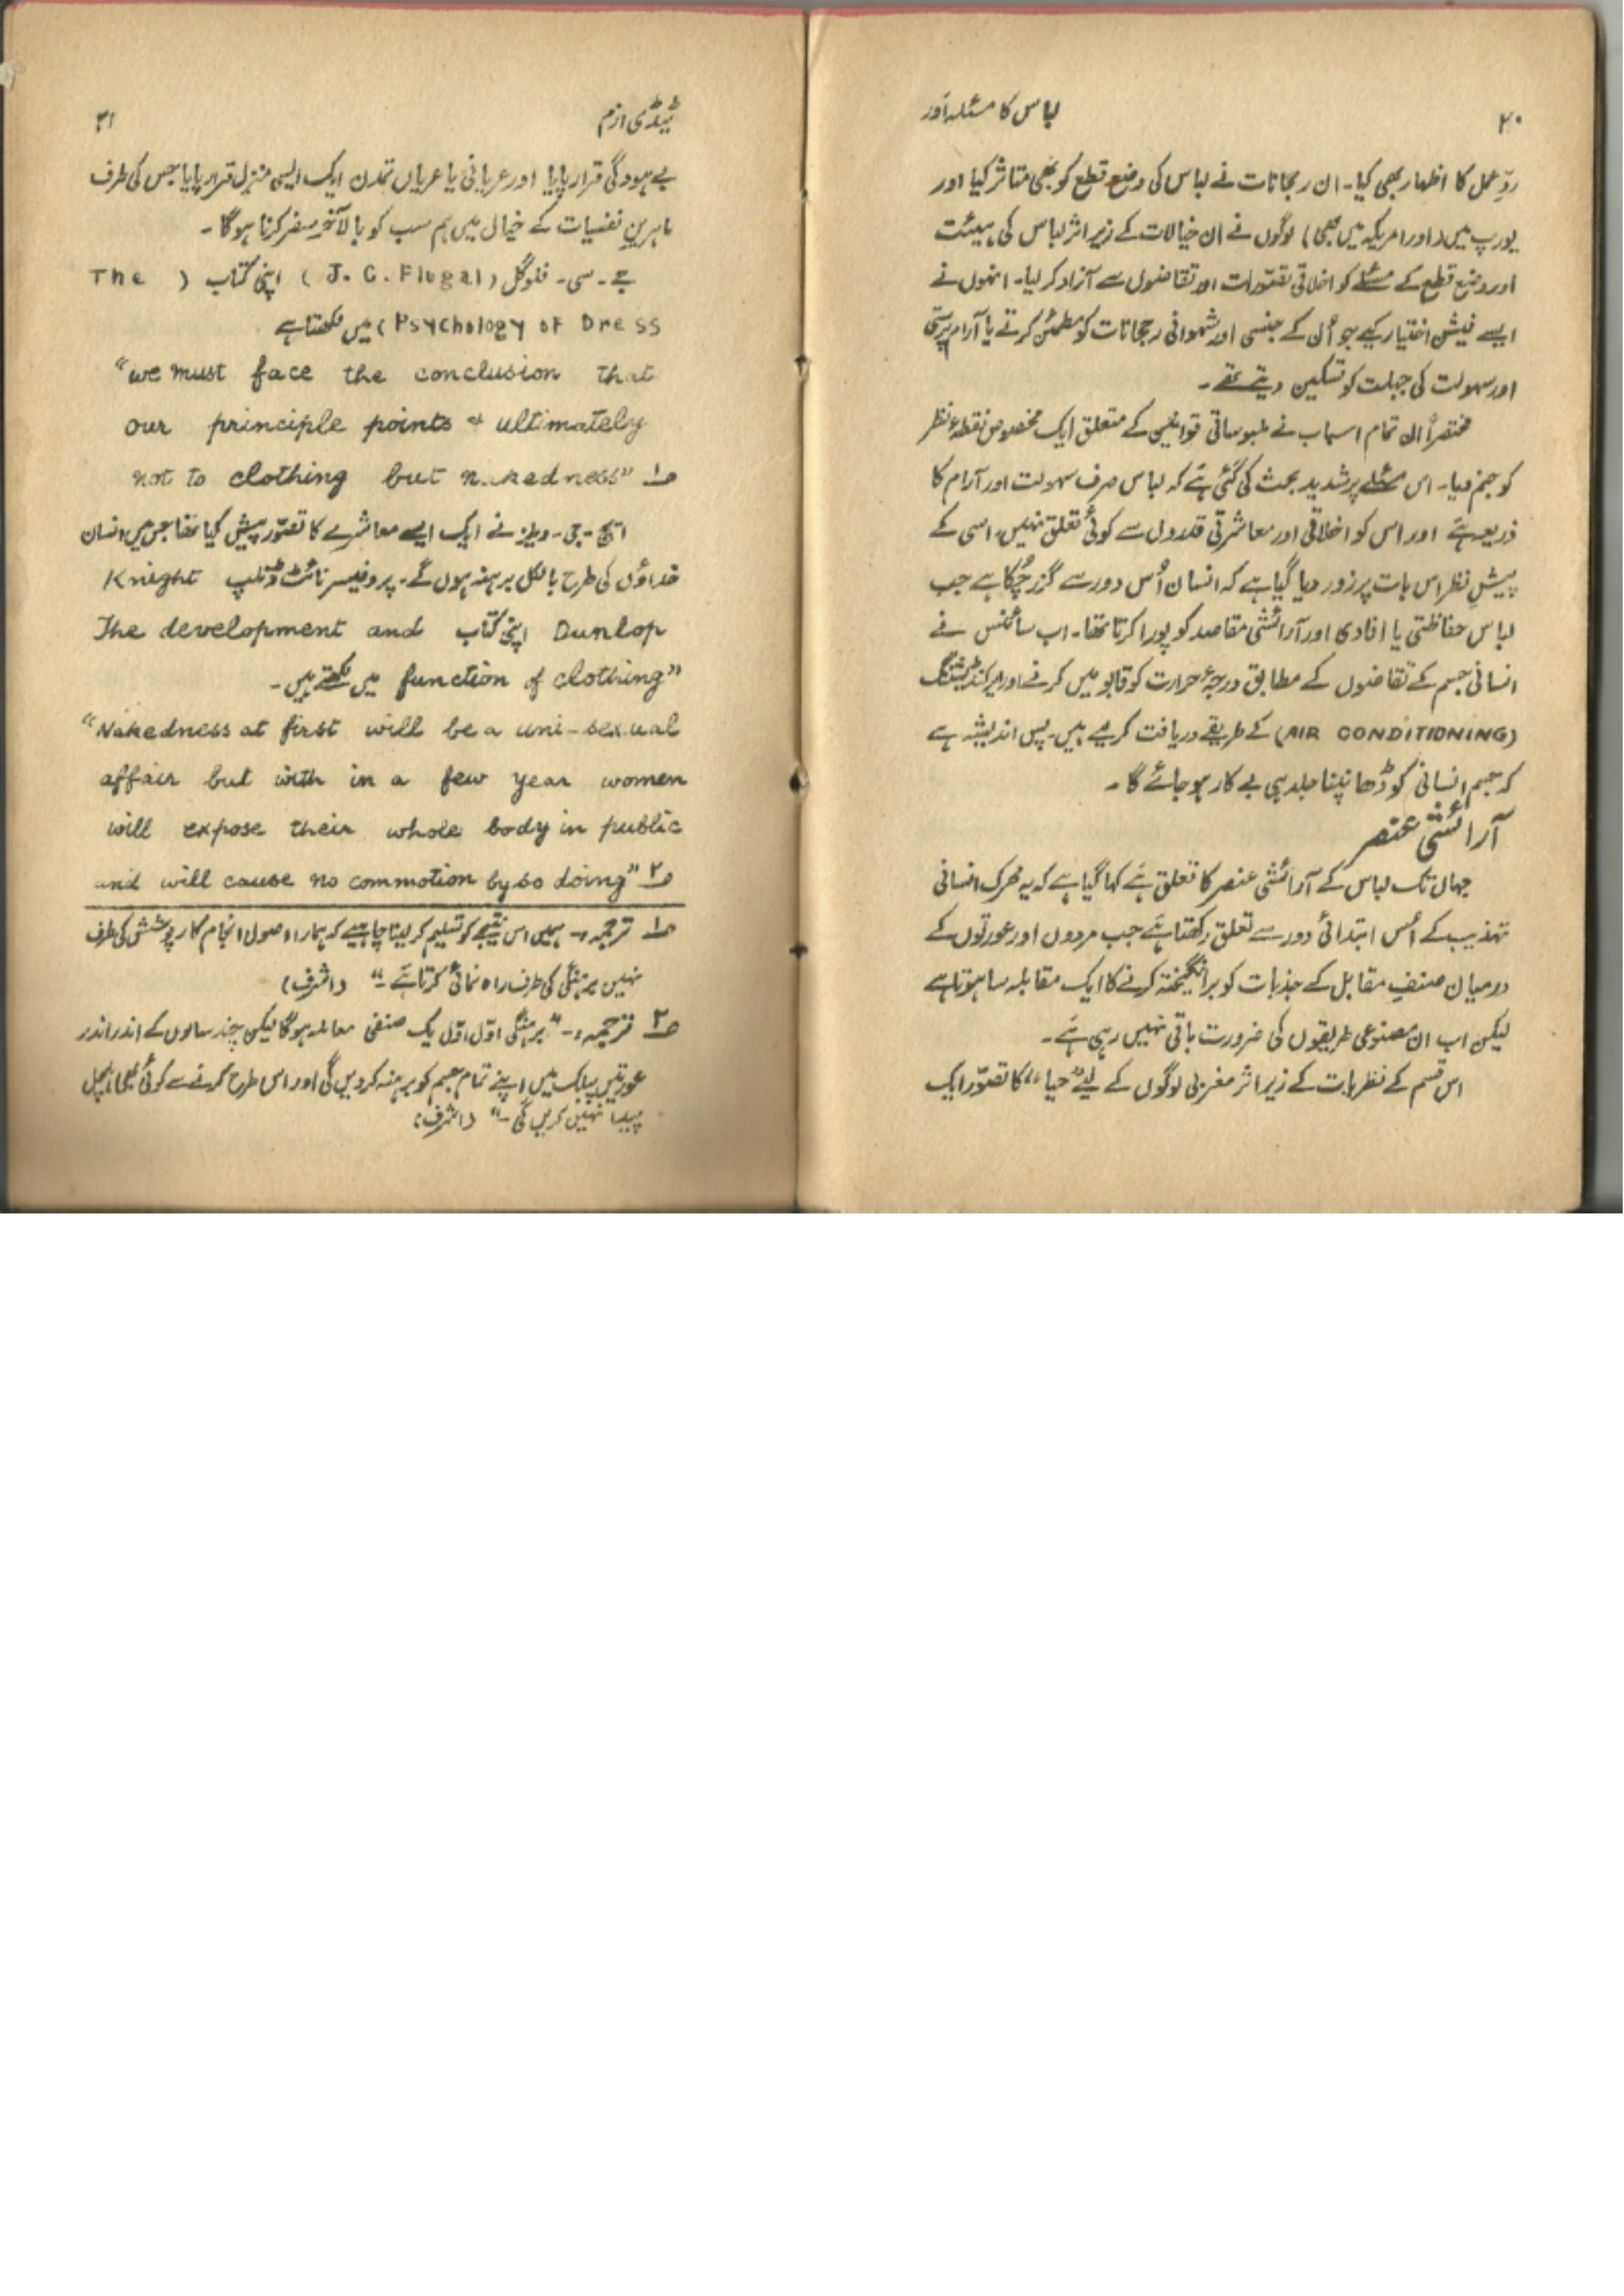 ۲۰
لباس کا مسئلہ اور
ردِّ عمل کا اظہار بھی کیا۔ ان رجحانات نے لباس کی وضع قطع کو بھی متاثر کیا اور
یورپ میں (اور امریکہ میں بھی) لوگوں نے ان خیالات کے زیر اثر لباس کی ہیئت
اور وضع قطع کے مسئلے کو اخلاقی تصوّرات اور تقاضوں سے آزاد کر لیا۔ انہوں نے
ایسے فیشن اختیار کیے جو اُن کے جنسی اور شہوانی رجحانات کو مطمئن کرتے یا آرام پرستی
اور سہولت کی جبلت کو تسکین دیتے تھے۔
مختصراً ان تمام اسباب نے ملبوساتی قوانین کے متعلق ایک مخصوص نقطۂ نظر
کو جنم دیا۔ اس مسئلے پر شدید بحث کی گئی ہے کہ لباس صرف سہولت اور آرام کا
ذریعہ ہے اور اس کو اخلاقی اور معاشرتی قدروں سے کوئی تعلق نہیں، اسی کے
پیشِ نظر اس بات پر زور دیا گیا ہے کہ انسان اُس دور سے گزر چُکا ہے جب
لباس حفاظتی یا افادی اور آرائشی مقاصد کو پورا کرتا تھا۔ اب سائنس نے
انسانی جسم کے تقاضوں کے مطابق درجۂ حرارت کو قابو میں کرنے اور ایرکنڈیشننگ
(AIR CONDITIONING) کے طریقے دریافت کر لیے ہیں۔ پس اندیشہ ہے
کہ جسم انسانی کو ڈھانپنا جلد ہی بے کار ہو جائے گا۔
آرائشی عنصر
جہاں تک لباس کے آرائشی عنصر کا تعلق ہے کہا گیا ہے کہ یہ محرک انسانی
تہذیب کے اُس ابتدائی دور سے تعلق رکھتا ہے جب مردوں اور عورتوں کے
درمیان صنفِ مقابل کے جذبات کو برانگیختہ کرنے کا ایک مقابلہ سا ہوتا ہے
لیکن اب ان مصنوعی طریقوں کی ضرورت باقی نہیں رہی ہے۔
اس قسم کے نظریات کے زیر اثر مغربی لوگوں کے لیے "حیا" کا تصوّر ایک
ٹیڈی ازم
۲۱
بے ہودگی قرار پایا اور عریانی یا عریاں تمدن ایک ایسی منزل قرار پایا جس کی طرف
ماہرین نفسیات کے خیال میں ہم سب کو بالآخر سفر کرنا ہوگا۔
جے۔ سی۔ فلوگل (J. C. Flugal) اپنی کتاب (The
Psychology of Dress) میں لکھتا ہے
"we must face the conclusion that
our principle points ultimately
not to clothing but nakedness" ۱
ایچ۔ جی۔ ویلز نے ایک ایسے معاشرے کا تصوّر پیش کیا تھا جس میں انسان
خداؤں کی طرح بالکل برہنہ ہوں گے۔ پروفیسر نائٹ ڈنلپ Knight
Dunlop اپنی کتاب The development and
function of clothing" میں لکھتے ہیں۔
"Nakedness at first will be a uni-sexual
affair but with in a few year women
will expose their whole body in public
and will cause no commotion by so doing" ۲
۱ ترجمہ:۔ ہمیں اس نتیجے کو تسلیم کر لینا چاہیے کہ ہمارا اصول انجام کار پوشش کی طرف
نہیں برہنگی کی طرف راہ نمائی کرتا ہے۔" (اشرف)
۲ ترجمہ:۔ "برہنگی اوّل اوّل یک صنفی معاملہ ہوگا لیکن چند سالوں کے اندر اندر
عورتیں پبلک میں اپنے تمام جسم کو برہنہ کر دیں گی اور اس طرح کرنے سے کوئی بھی ہلچل
پیدا نہیں کریں گی۔" (اشرف)